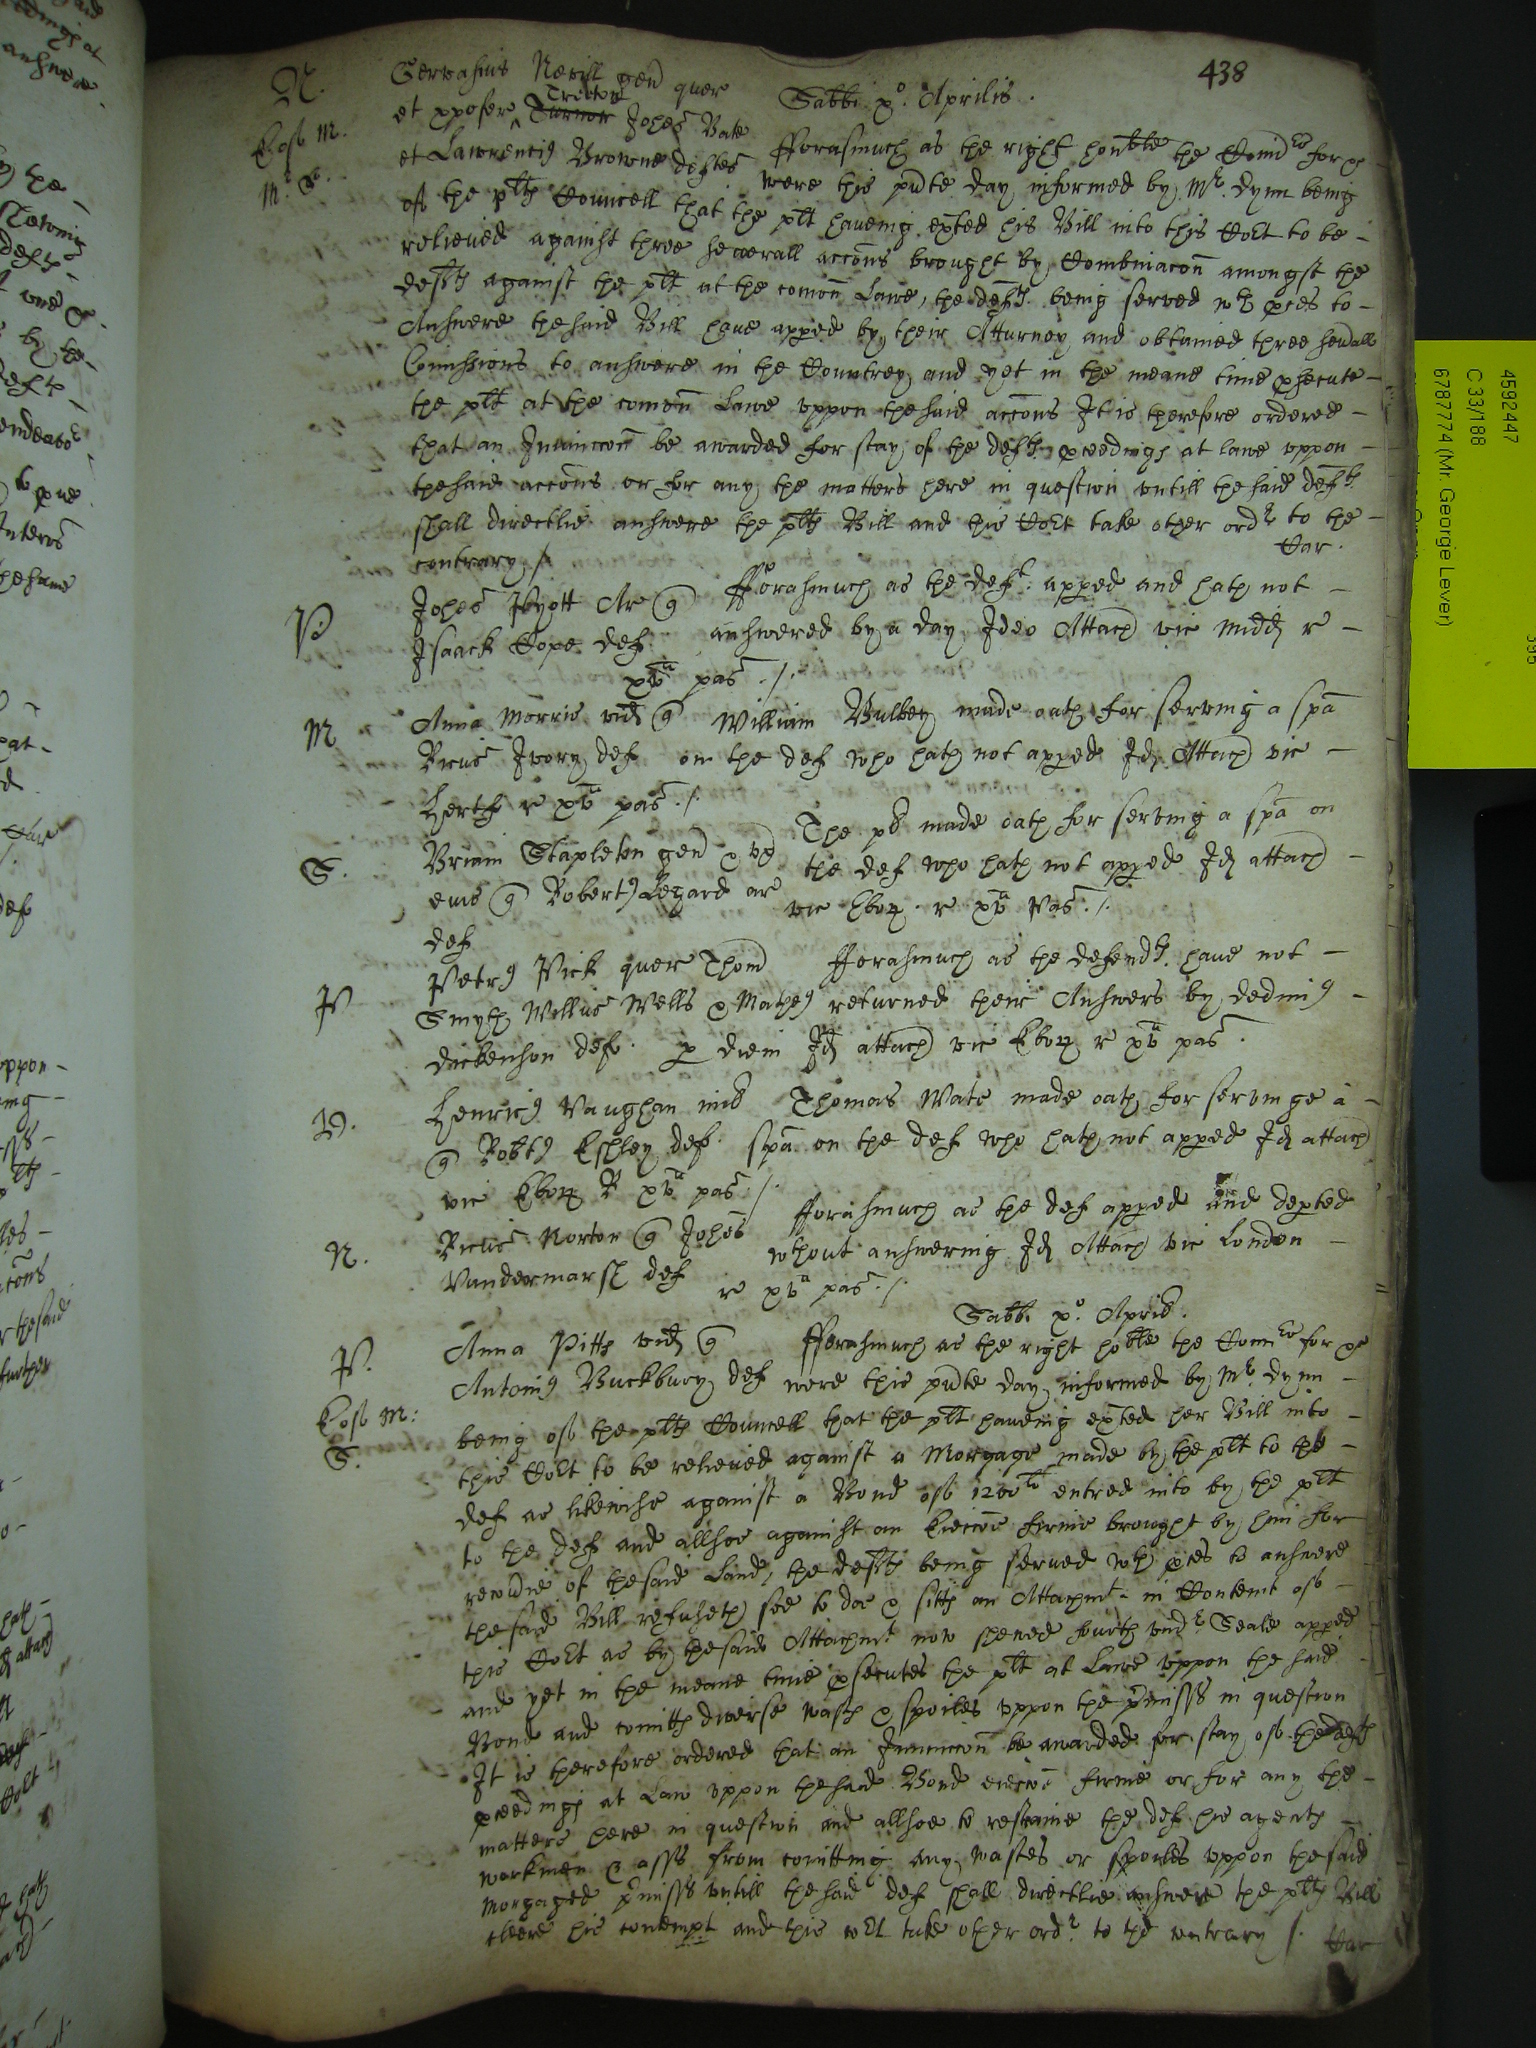 438
N.
Gervasius Nevill gen quer
et xpofer Turnor Trevor Johes Bate
et Lawrencius Browne deftes
Sabbi xo. Aprilis.
Eosb M.
M. S.
fforasmuch as the right honble the Comrs for ye
were this pnte day informed by Mr. Dynn being
of the plts Councell that the plt haveing exted his Bill into this Cort to be
relieved against three severall accons brought by Combinacon amongst the
defts against the plt at the comon Lawe, the defts. being served wth pces to
Answere thesaid Bill have apped by their Atturney and obtained three sevall
Comissions to answere in the Countrey and yet in the meane time psecute
the plt at the comon Lawe uppon thesaid accons It is therefore ordered
that an Iniunccon be awarded for stay of the defts pceedings at lawe uppon
thesaid accons or for any the matters here in question untill thesaid defts
shall directlie answere the plts Bill and this Cort take other ordr to the
contrary /. Car.
P.
Johes Pyott Ar q
Isaack Cope def
fforasmuch as the deft. apped and hath not
answered by a day Ideo Attach vic Midd r
xva pas. /.
M
Anna Morris vid q William Bulkey made oath for serving a spa
Ricus Ivory def on the def who hath not apped Id Attach vic
Hertf r xva pas. /.
S.
Briain Stapleton gen & ux
eius q Robertus Legard ar
def
The pd made oath for serving a spa on
the def who hath not apped Id attach
vic Ebor. r xva Pas. /.
P
Petrus Pick quer Thom
Smyth Willus Wells & Matheus
Dickenson def.
fforasmuch as the defendts. have not
returned their Answers by dedimus
p diem Id attach vic Ebor r xva pas.
V.
Henricus Vaughan mil
q Robtus Eshley def.
Thomas Wate made oath for servinge a
spa on the def who hath not apped Id attach
vic Ebor R xva pas /.
N.
Ricus Norton q Johes
Vandermarsh def
fforasmuch as the def apped and depted
wthout answering Id Attach vic London
r xva pas. /.
Sabbi xo. April.
P.
Eosb M:
S.
Anna Pitts vid q
Antonius Buckbury def
fforasmuch as the right hoble the Comrs for ye
were this pnte day informed by Mr. Dynn
being of the plts Councell that the plt haveing exted her Bill into
this Cort to be relieved against a Morgage made by the plt to the
def as likewise against a Bond of 1200li entred into by the plt
to the def and allsoe against an Eieccoe firme brought by him for
recovie of thesaid Land, the defts being served wth pces to answere
thesaid Bill refuseth soe to doe & sitts an Attachmt. in Contemt of
this Cort as by thesaid Attachmt now shewed fourth undr Seale apped
and yet in the meane time psecutes the plt at Lawe uppon the said
Bond and comitts diverse wasts & spoiles uppon the pmisss in question
It is therefore ordered that an Iniunccon be awarded for stay of the defts
pceedings at Law uppon thesaid Bond eieccoe firme or for any the
matters here in question and allsoe to restraine the def his agents
workmen & asss from comitting any wastes or spoiles uppon thesaid
Morgaged pmisss untill thesaid def shall directlie answere the plts Bill
cleere his contempt and this Cort take other ordr to the contrary /. Car
4592447
C 33/188
6787774 (Mr. George Lever)